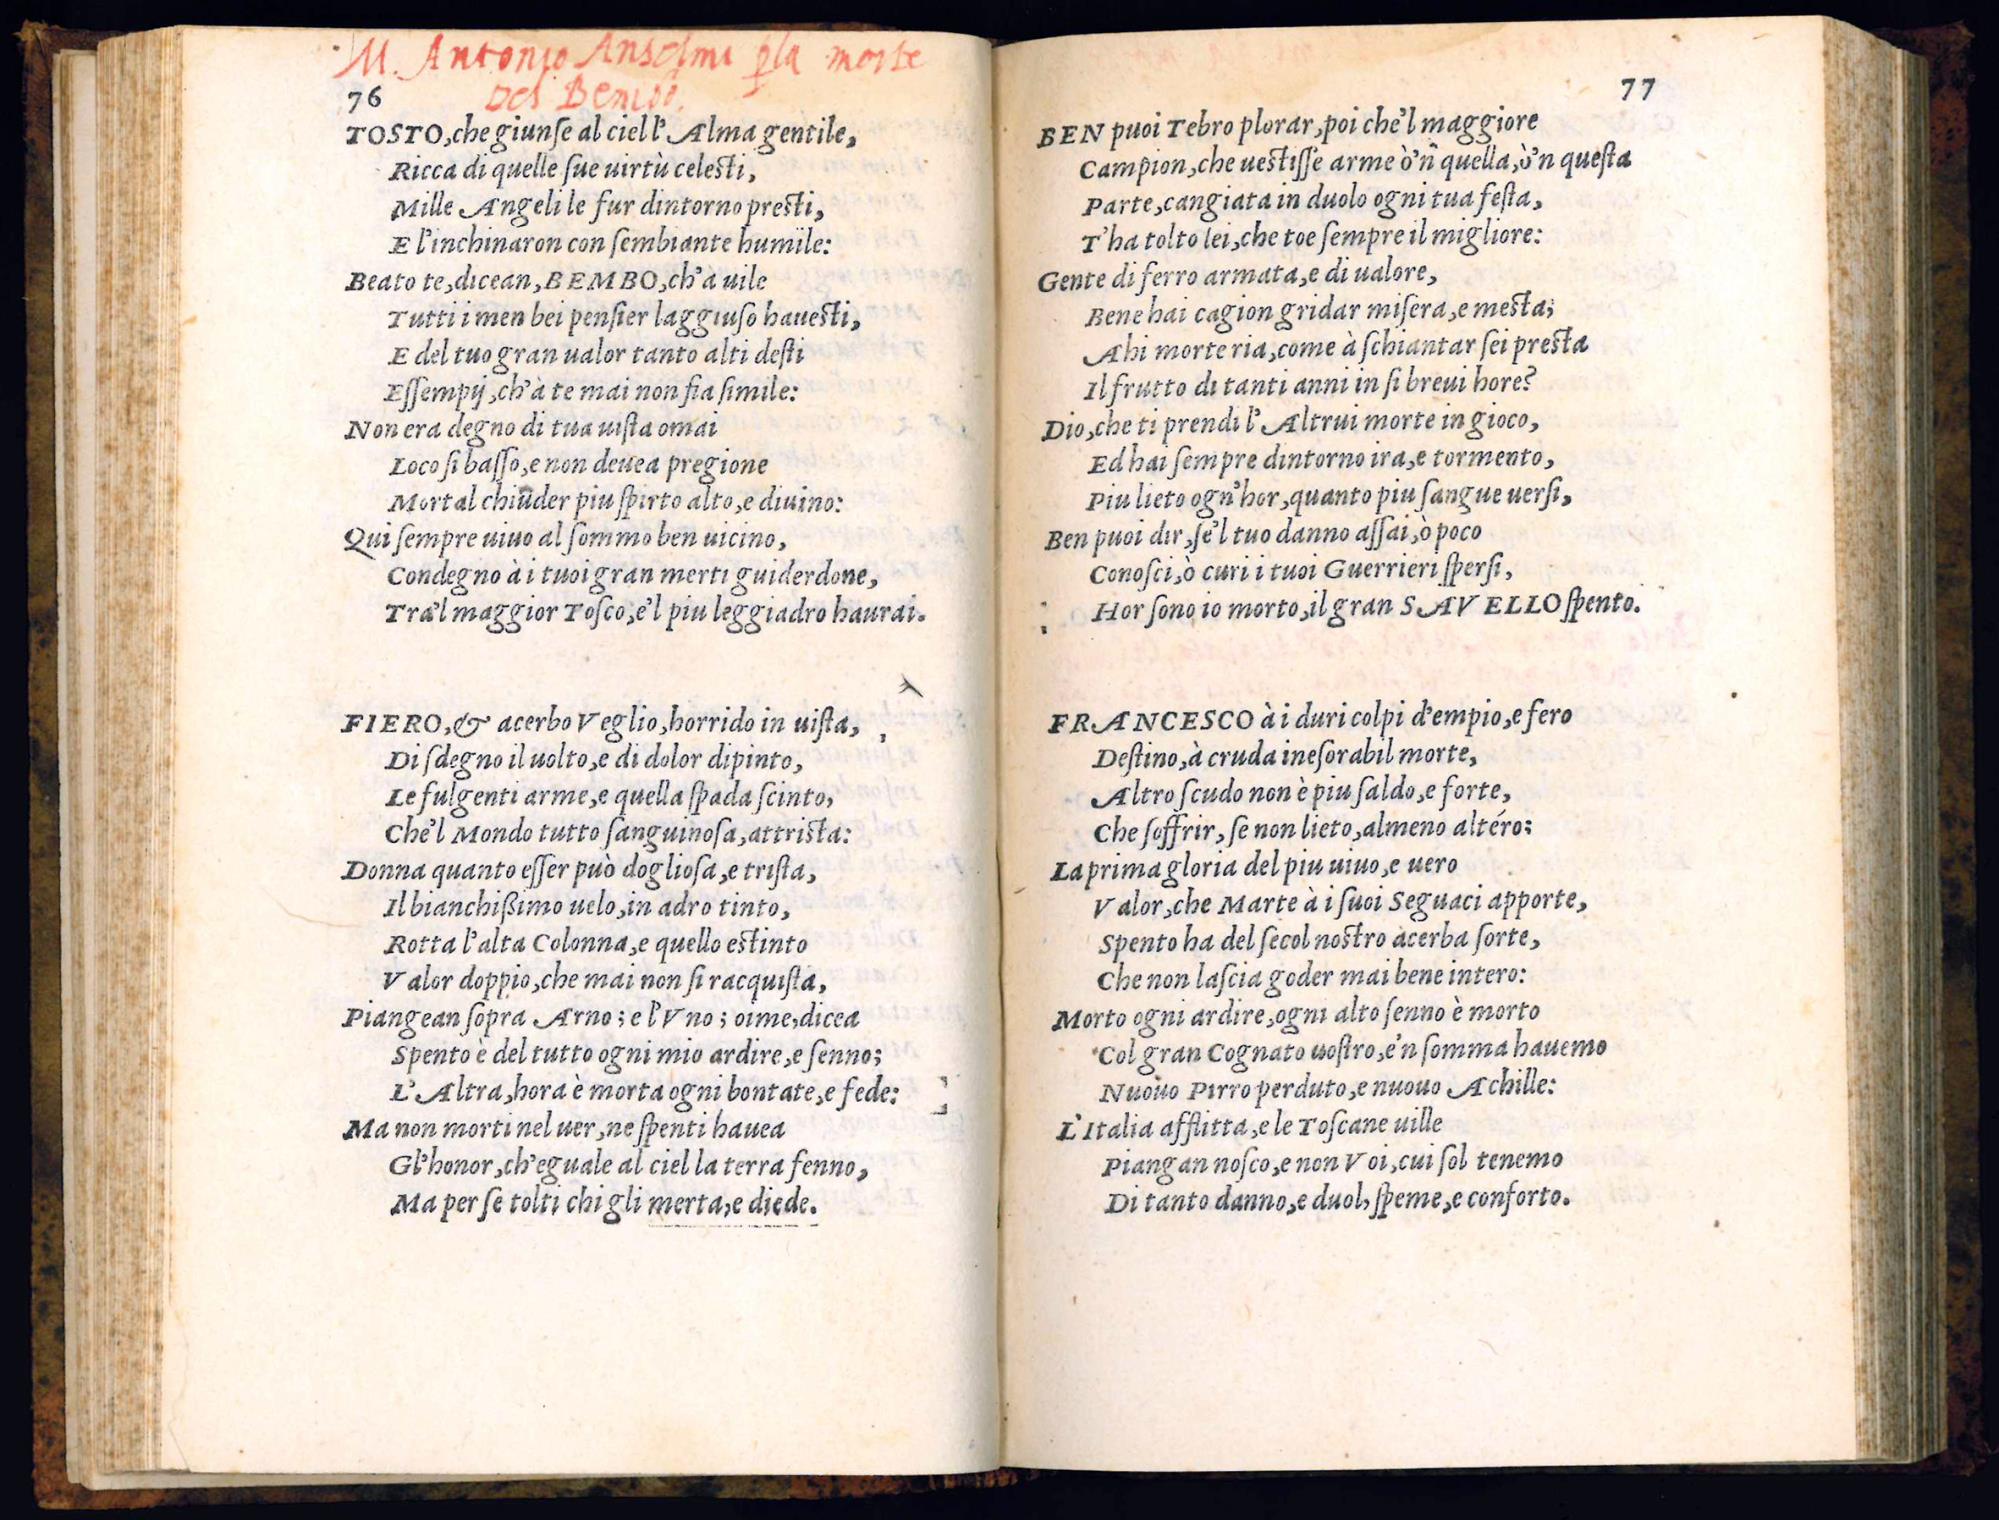 M. Antonio Anselmi p la morte
del Bembo.
76
TOSTO, che giunſe al ciel l'Alma gentile,
Ricca di quelle ſue uirtù celeſti,
Mille Angeli le fur dintorno preſti,
E l'inchinaron con ſembiante humile:
Beato te, dicean, BEMBO, ch'a uile
Tutti i men bei penſier laggiuſo haueſti,
E del tuo gran ualor tanto alti deſti
Eſſempij, ch'à te mai non fia ſimile:
Non era degno di tua uiſta omai
Loco ſi baſſo, e non deuea pregione
Mortal chiuder piu ſpirto alto, e diuino:
Qui ſempre uiuo al ſommo ben uicino,
Condegno à i tuoi gran merti guiderdone,
Tra'l maggior Toſco, e'l piu leggiadro haurai.
FIERO, & acerbo Veglio, horrido in uiſta,
Di ſdegno il uolto, e di dolor dipinto,
Le fulgenti arme, e quella ſpada ſcinto,
Che'l Mondo tutto ſanguinoſa, attriſta:
Donna quanto eſſer può doglioſa, e triſta,
Il bianchißimo uelo, in adro tinto,
Rotta l'alta Colonna, e quello eſtinto
Valor doppio, che mai non ſi racquiſta,
Piangean ſopra Arno; e l'Vno; oime, dicea
Spento è del tutto ogni mio ardire, e ſenno;
L'Altra, hora è morta ogni bontate, e fede:
Ma non morti nel uer, ne ſpenti hauea
Gl'honor, ch'eguale al ciel la terra fenno,
Ma per ſe tolti chi gli merta, e diede.
77
BEN puoi Tebro plorar, poi che'l maggiore
Campion, che ueſtiſſe arme ò'n quella, ò'n queſta
Parte, cangiata in duolo ogni tua feſta,
T'ha tolto lei, che toe ſempre il migliore:
Gente di ferro armata, e di ualore,
Bene hai cagion gridar miſera, e meſta;
Ahi morte ria, come à ſchiantar ſei preſta
Il frutto di tanti anni in ſi breui hore?
Dio, che ti prendi l'Altrui morte in gioco,
Ed hai ſempre dintorno ira, e tormento,
Piu lieto ogn'hor, quanto piu ſangue uerſi,
Ben puoi dir, ſe'l tuo danno aſſai, ò poco
Conoſci, ò curi i tuoi Guerrieri ſperſi,
Hor ſono io morto, il gran SAVELLO ſpento.
FRANCESCO à i duri colpi d'empio, e fero
Deſtino, à cruda ineſorabil morte,
Altro ſcudo non è piu ſaldo, e forte,
Che ſoffrir, ſe non lieto, almeno altéro;
La prima gloria del piu uiuo, e uero
Valor, che Marte à i ſuoi Seguaci apporte,
Spento ha del ſecol noſtro acerba ſorte,
Che non laſcia goder mai bene intero:
Morto ogni ardire, ogni alto ſenno è morto
Col gran Cognato uoſtro, e'n ſomma hauemo
Nuouo Pirro perduto, e nuouo Achille:
L'Italia afflitta, e le Toſcane uille
Piangan noſco, e non Voi, cui ſol tenemo
Di tanto danno, e duol, ſpeme, e conforto.